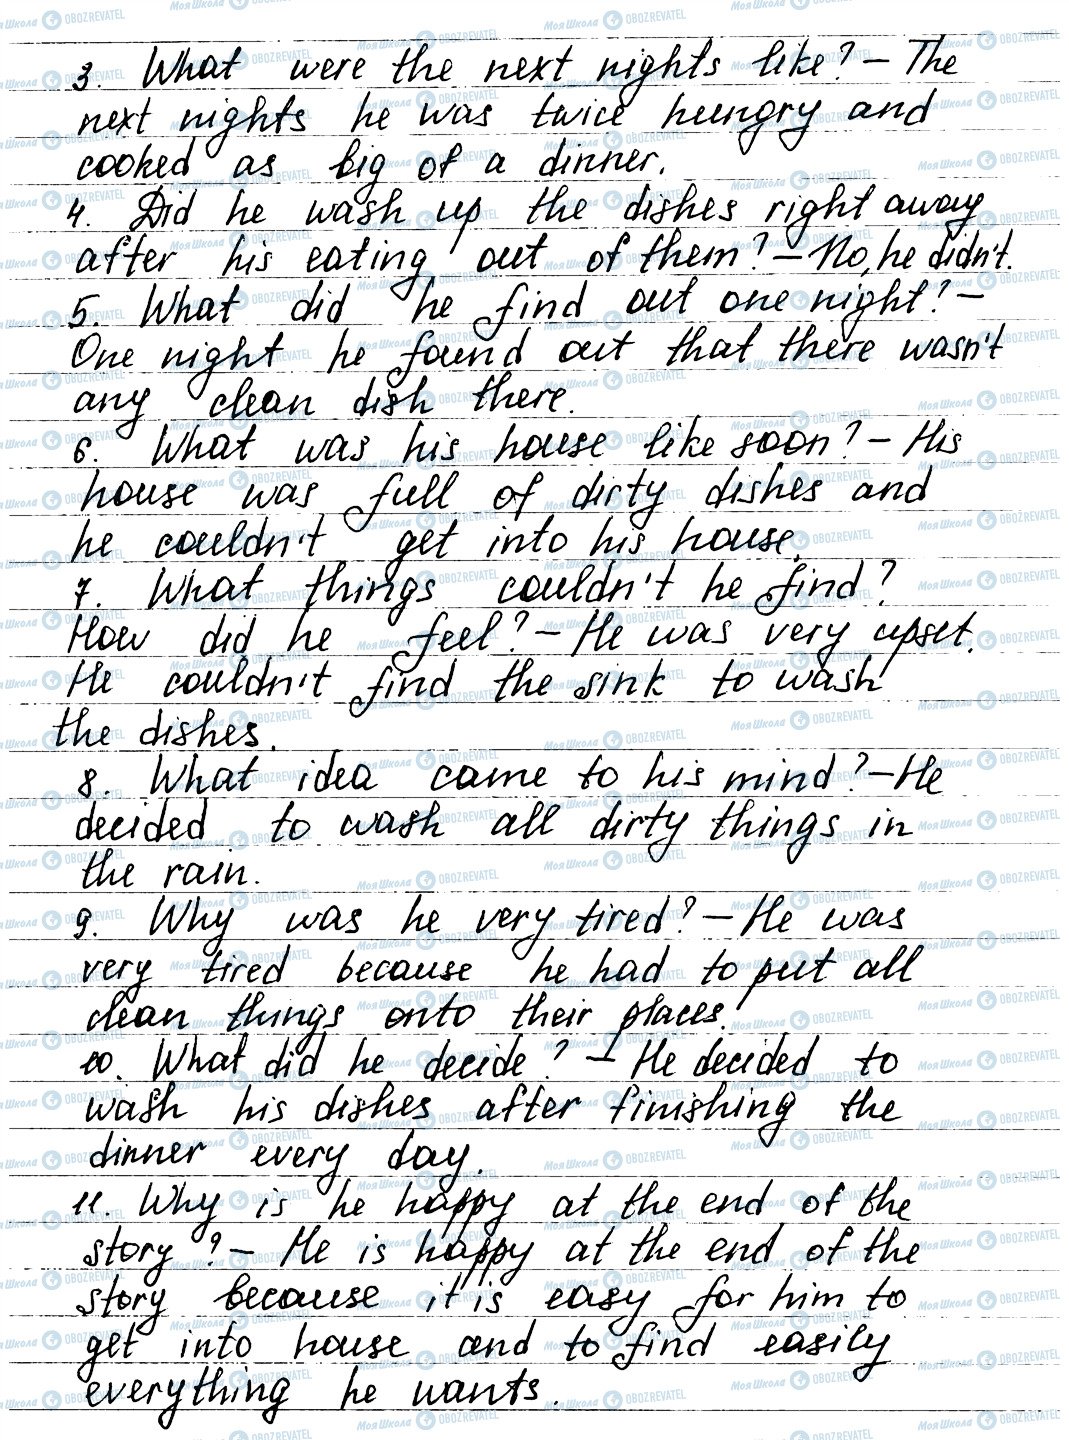 3. What were the next nights like? – The
next nights he was twice hungry and
cooked as big of a dinner.
4. Did he wash up the dishes right away
after his eating out of them? – No, he didn't.
5. What did he find out one night? –
One night he found out that there wasn't
any clean dish there.
6. What was his house like soon? – His
house was full of dirty dishes and
he couldn't get into his house.
7. What things couldn't he find?
How did he feel? – He was very upset.
He couldn't find the sink to wash
the dishes.
8. What idea came to his mind? – He
decided to wash all dirty things in
the rain.
9. Why was he very tired? – He was
very tired because he had to put all
clean things onto their places.
10. What did he decide? – He decided to
wash his dishes after finishing the
dinner every day.
11. Why is he happy at the end of the
story? – He is happy at the end of the
story because it is easy for him to
get into house and to find easily
everything he wants.
МояШкола OBOZREVATEL